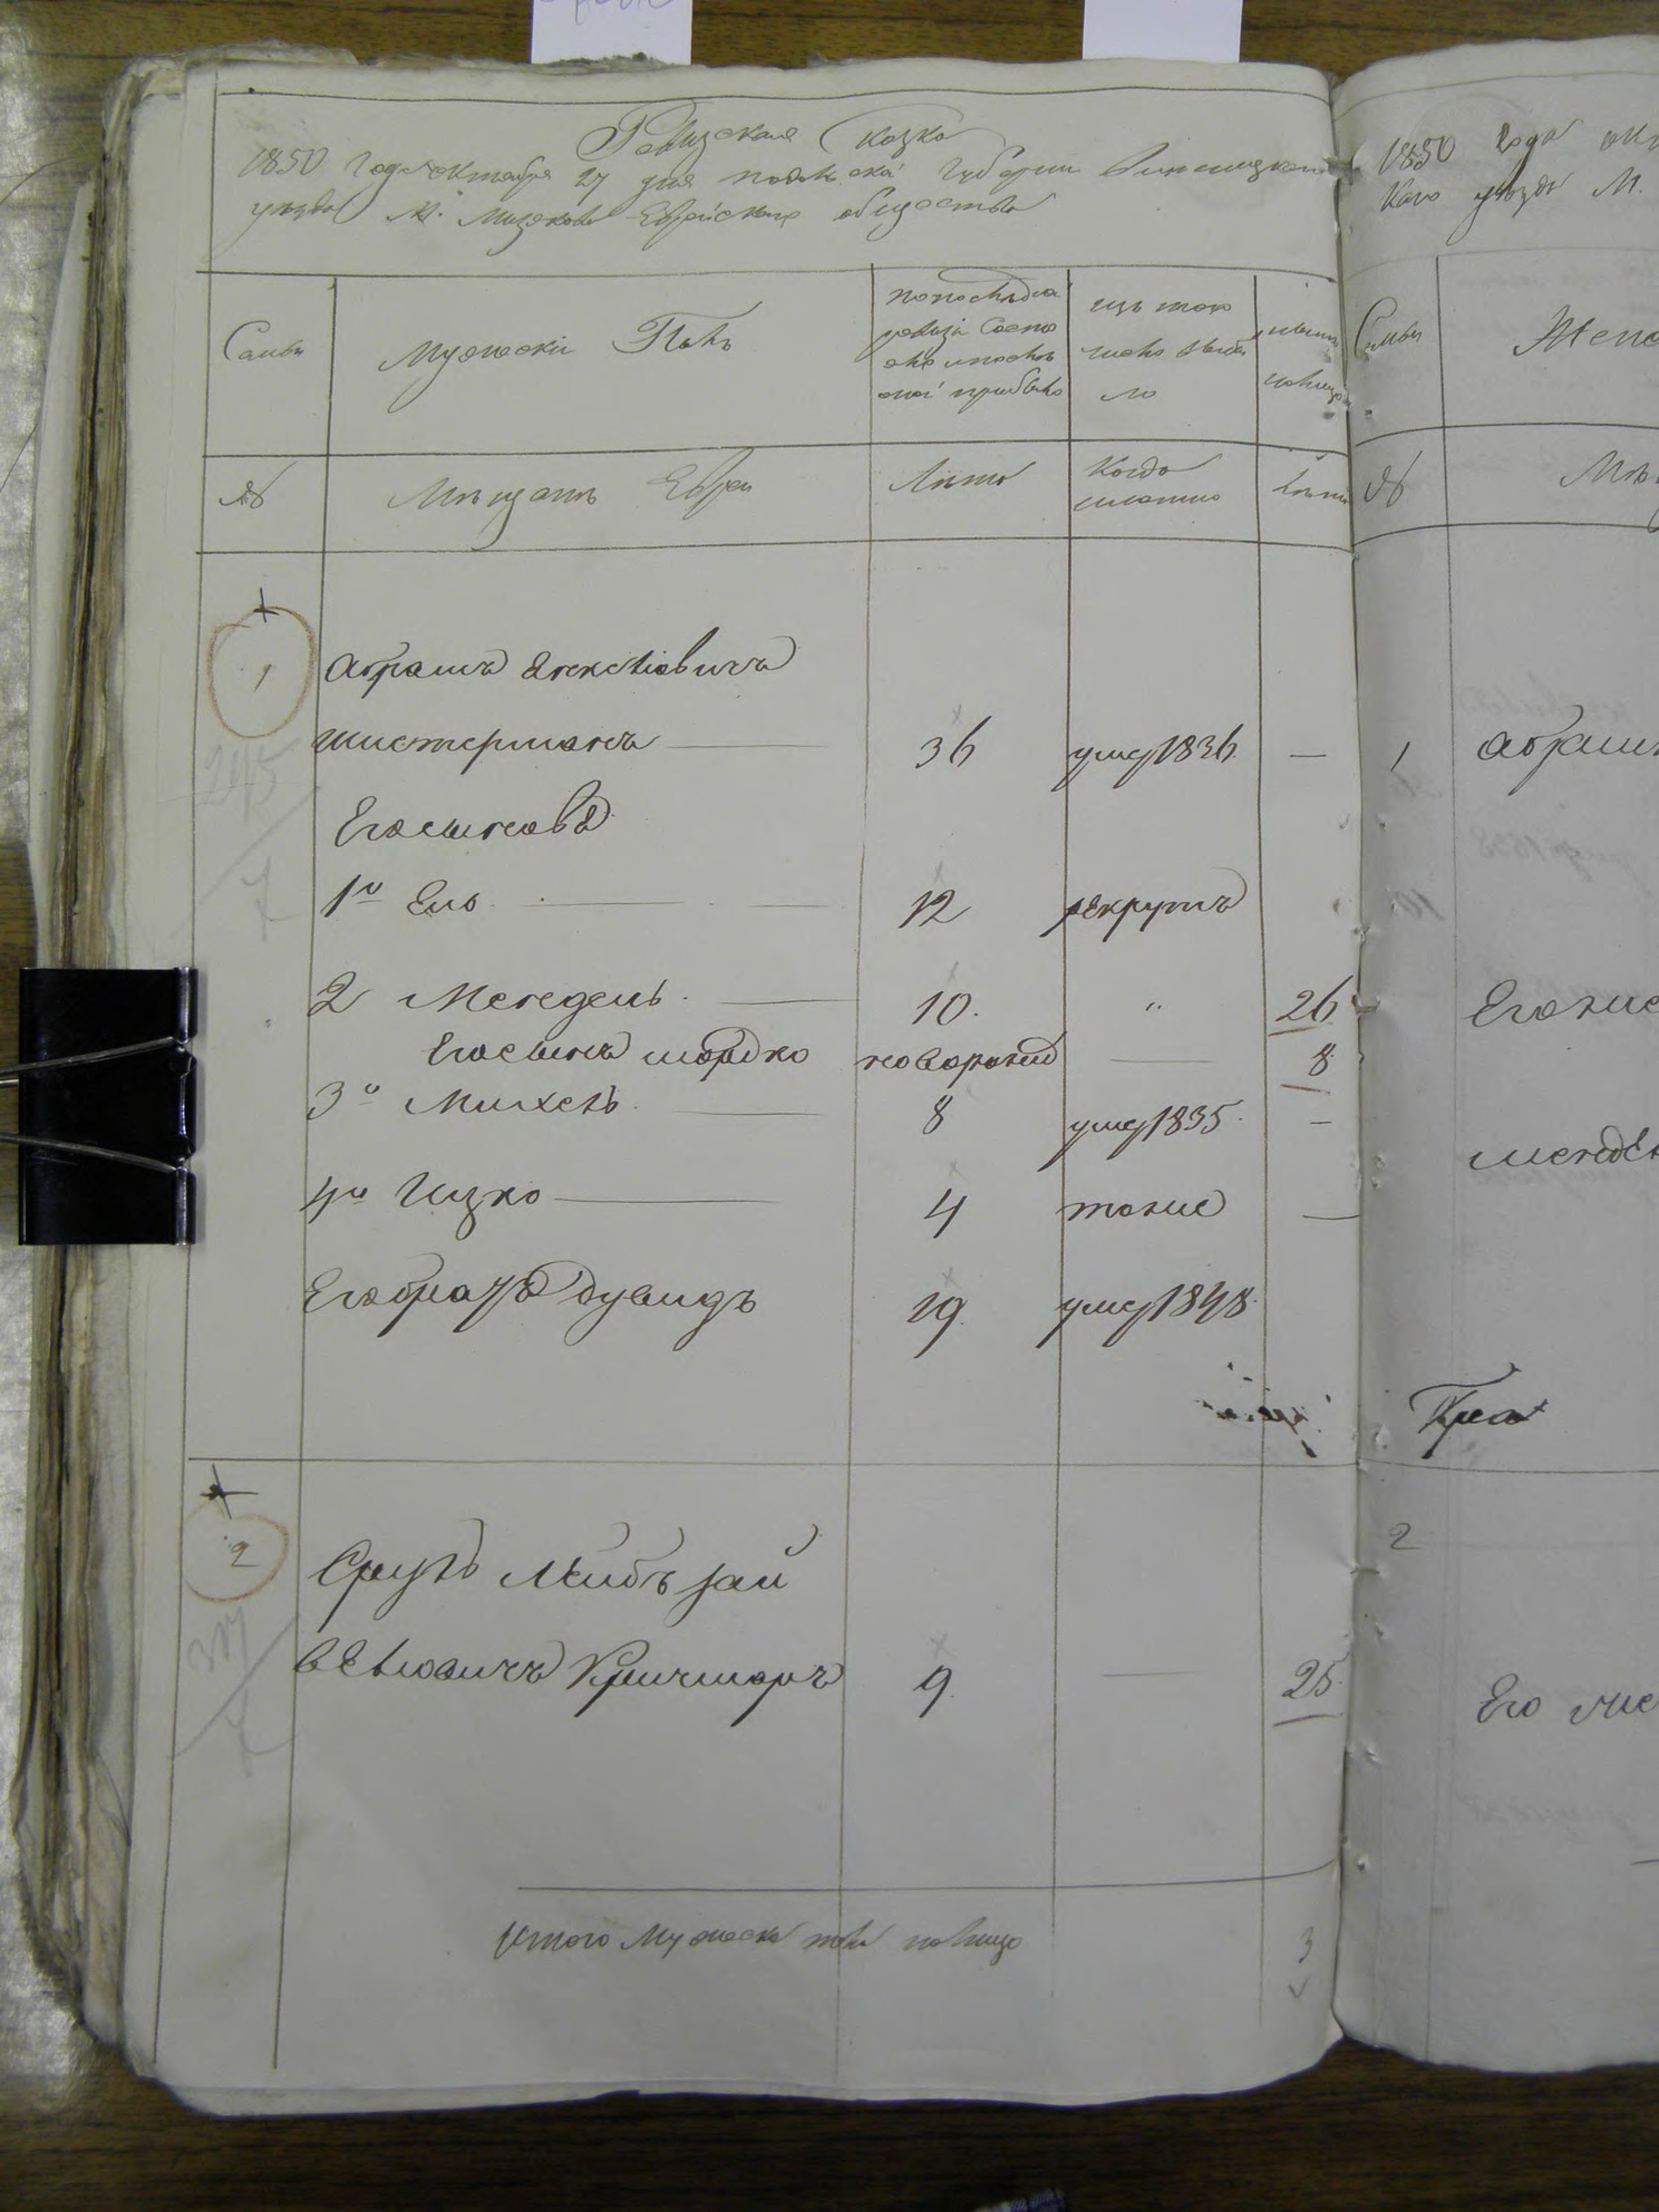 Ревизская Сказка
1850 Года октября 27 дня подольской Губернии Винницкого
уезда М. Мизякова Еврейскаго общества
Семьи
Мужески Полъ
по последней
ревизіи Состо
яло и после
оной прибыло
изъ того
числа выбы
ло
ныне
налицо
№
Мещане Евреи
Лета
Когда
именно
Лета
1
Абрамъ
Шистерманъ 36 умер 1836 —
Его сыновья
1й Ель 12 рекрутъ
2 Менедель 10 " 26
Его сынъ Мордко новорожден — 8
3й Михель 8 умер 1835 —
4й Ицко 4 тоже —
Его братъ Дувидъ 19 умер 1848
2
Сруль Лейбъ Зай
велиовичъ Кришмаръ 9 — 25
Итого Мужеска пола налицо 3
245
7
1850 Года окт
каго уезда М.
Семьи
Женс
№
Мещ
1 Абрам
Его же
Менделя
Кра
2
Его же